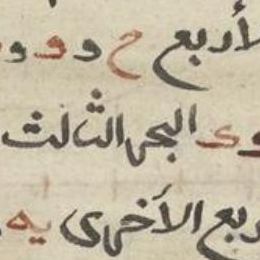 لأربع ح و و و
وى البحر الثالث
ربع الأخرى يه